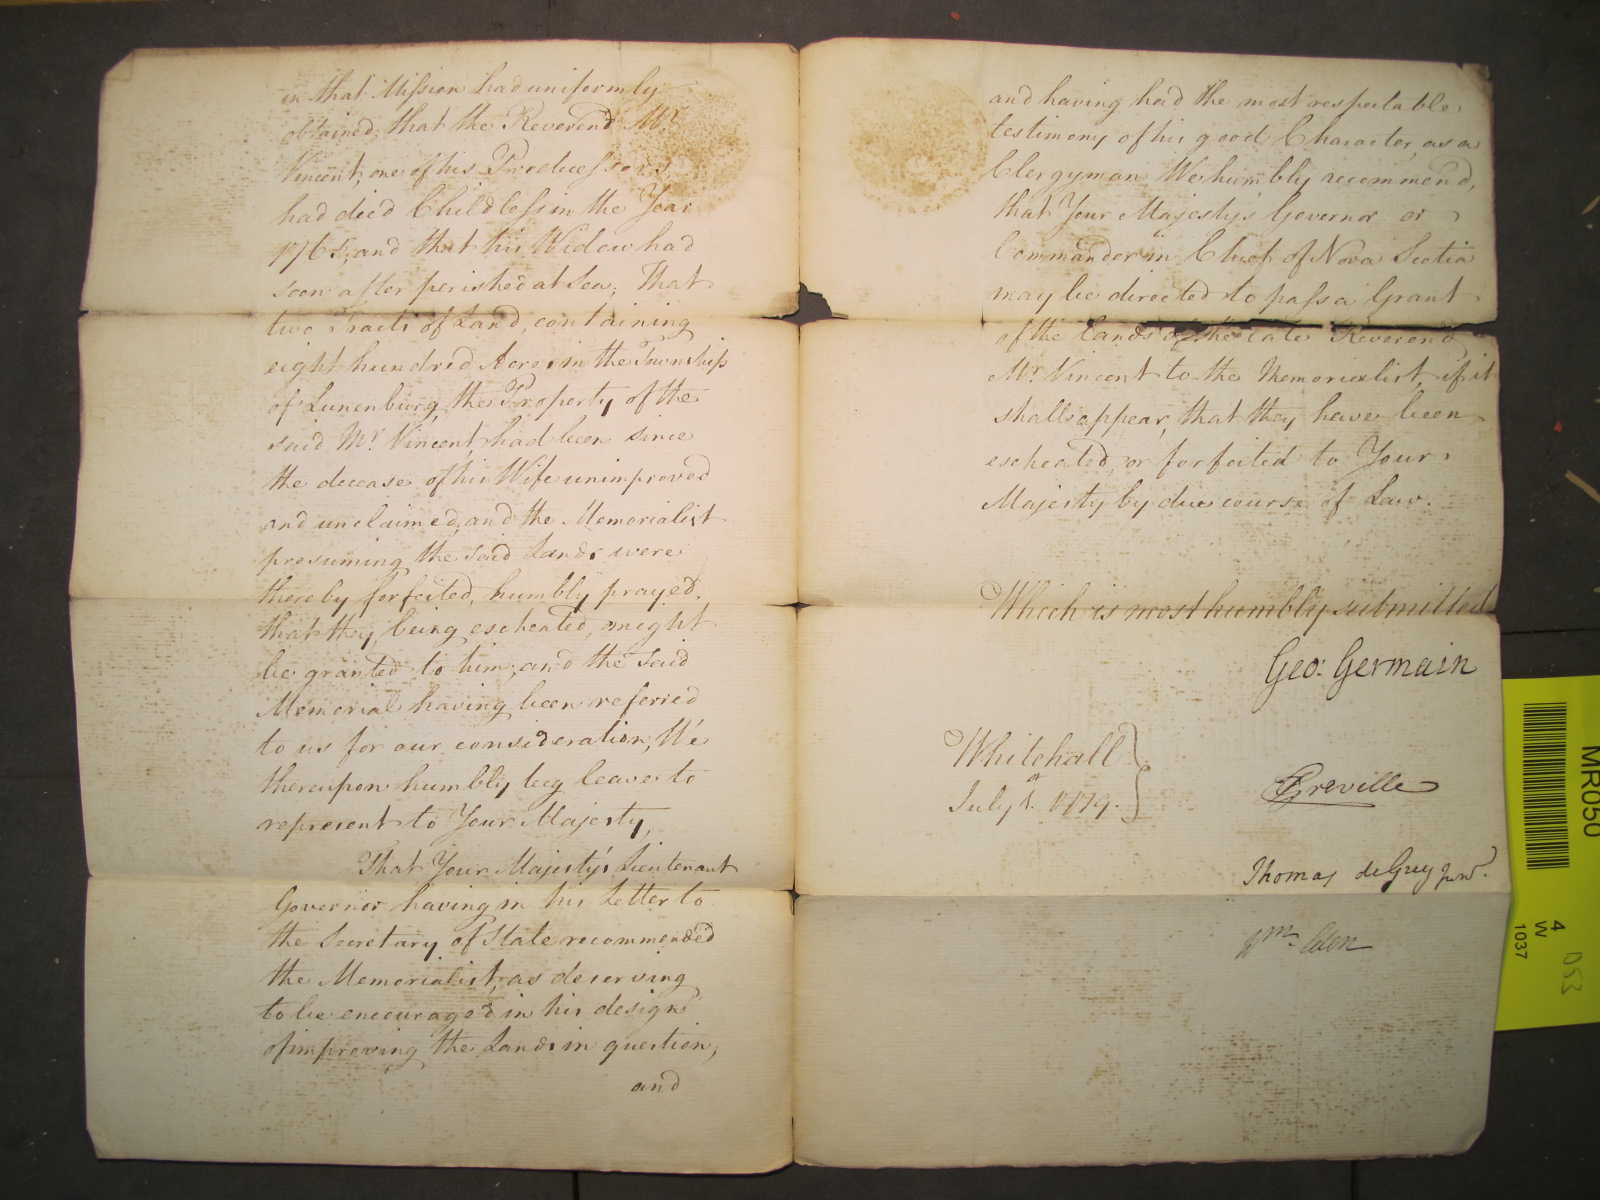 in that Mission had uniformly
obtained; that the Reverend Mr.
Vincent, one of his Predecessors,
had died Childless in the Year
1765; and that his Widow had
soon after perished at Sea; That
two Tracts of Land, containing
eight hundred Acres in the Township
of Lunenburg, the Property of the
said Mr. Vincent, had been since
the decease of his Wife unimproved
and unclaimed, and the Memorialist
presuming the said Lands were
thereby forfeited, humbly prayed,
that they, being escheated, might
be granted to him; and the said
Memorial having been referred
to us for our consideration, We
thereupon humbly beg leave to
represent to Your Majesty,
That Your Majesty's Lieutenant
Governor having in his Letter to
the Secretary of State recommended
the Memorialist, as deserving
to be encouraged in his design
of improving the Lands in question;
and
and having had the most respectable
testimony of his good Character, as a
Clergyman, We humbly recommend,
that Your Majesty's Governor or
Commander in Chief of Nova Scotia
may be directed to pass a Grant
of the Lands of the late Reverend
Mr. Vincent to the Memorialist, if it
shall appear, that they have been
escheated, or forfeited to Your
Majesty by due course of Law.
Which is most humbly submitted
Geo: Germain
Whitehall
July 1st. 1779.
Greville
Thomas de Grey Junr.
Wm Eden
MR050
4
W
1037
053